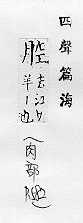 四聲篇海
腔 去江切
羊丨也
(肉部